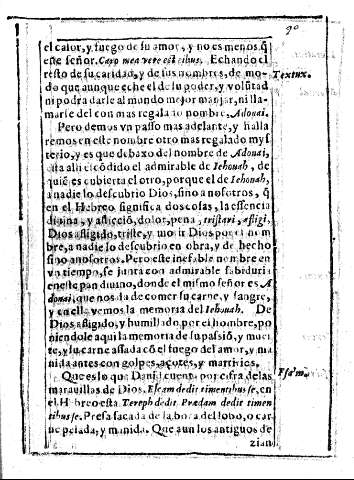 90
el calor, y fuego de su amor, y no es menos, q̃
este señor. Caro mea vere est cibus. Echando el
resto de su caridad, y de sus nombres, de mo-
do que aunque eche el de su poder, y volũtad
ni podra darle al mundo mejor manjar, ni lla-
marse del con mas regalado nombre, Adonai.
Textux.
Pero demos vn passo mas adelante, y halla
remos en este nombre otro mas regalado mys
terio, y es que debaxo del nombre de Adonai,
esta alli escõdido el admirable de Iehouah, de
quiẽ es cubierta el otro, porque el de Iehouah,
a nadie lo descubrio Dios, sino a nosotros, q̃
en el Hebreo significa dos cosas, la essencia
diuina, y aflicciõ, dolor, pena, tristari, afligi,
Dios afligido, triste, y
bre, a nadie lo descubrio en obra, y de hecho
sino a nosotros. Pero este inefable nombre en
vn tiempo, se junta con admirable sabiduria
en este pan diuino, donde el mismo señor es A
donai, que nos da de comer su carne, y sangre,
y en ella vemos la memoria del Iehouah. De
Dios afligido, y humillado por el hombre, po
niendole aqui la memoria de su passiõ, y muer
te, y su carne assada cõ el fuego del amor, y ma
nida antes con golpes, açotes, y martirios.
Que es lo que Dauid cuenta por cifra de las
marauillas de Dios. Escam dedit timentibus se, en
Psa'm.
el Hebreo esta Tereph dedit Prædam dedit timen
tibus se. Presa sacada de la boca del lobo, o car
ne pelada, y manida. Que aun los antiguos de
zian